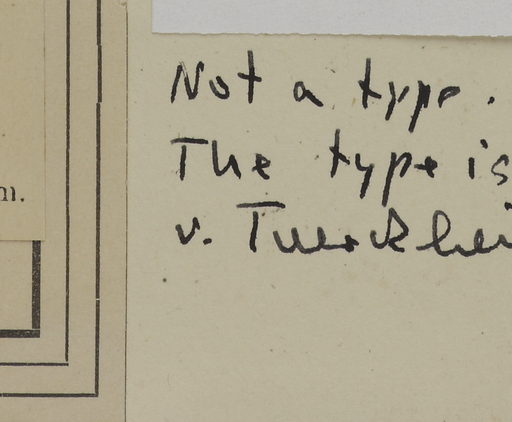 Not a type.
The type is
m.
v. Tuerckhei